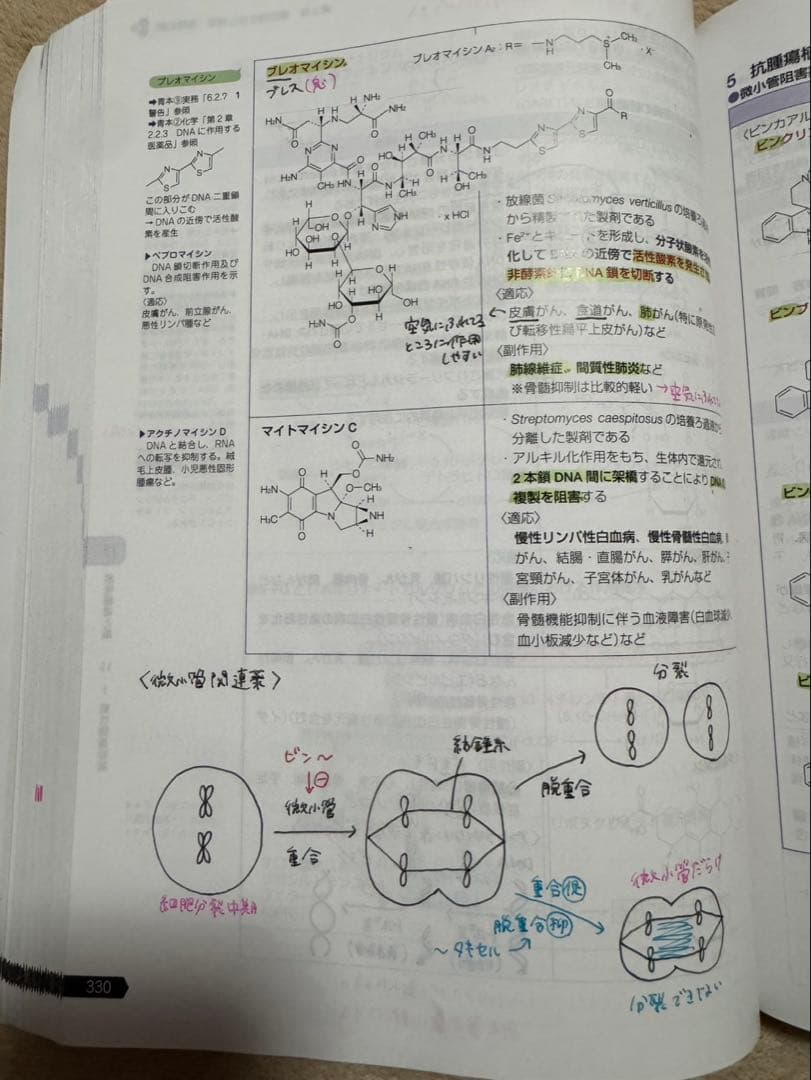 ブレオマイシン
➡青本⑨実務「6.2.7 1
警告」参照
➡青本②化学「第2章
2.2.3 DNAに作用する
医薬品」参照
この部分がDNA二重鎖
間に入りこむ
→DNAの近傍で活性酸
素を産生
▶ペプロマイシン
DNA鎖切断作用及び
DNA合成阻害作用を示
す。
〈適応〉
皮膚がん、前立腺がん、
悪性リンパ腫など
▶アクチノマイシンD
DNAと結合し、RNA
への転写を抑制する。絨
毛上皮腫、小児悪性固形
腫瘍など。
ブレオマイシン
ブレス(息)
ブレオマイシンA₂：R=
· x HCl
空気にふれてる
ところに作用
しやすい
・放線菌 Streptomyces verticillus の培養ろ
から精製 た製剤である
・Fe²⁺とキ ートを形成し、分子状酸素を
化して の近傍で活性酸素を発生
非酵素 NA鎖を切断する
〈適応〉
皮膚がん、食道がん、肺がん(特に原発
び転移性扁平上皮がん)など
〈副作用〉
肺線維症、間質性肺炎など
※骨髄抑制は比較的軽い →空気にふれて
マイトマイシンC
・Streptomyces caespitosus の培養ろ過
分離した製剤である
・アルキル化作用をもち、生体内で還元さ
2本鎖DNA間に架橋することによりDNA
複製を阻害する
〈適応〉
慢性リンパ性白血病、慢性骨髄性白血病、
がん、結腸・直腸がん、膵がん、肝がん、
宮頸がん、子宮体がん、乳がんなど
〈副作用〉
骨髄機能抑制に伴う血液障害(白血球減
血小板減少など)など
〈微小管関連薬〉
分裂
紡錘糸
ビン〜
↓⊖
微小管
重合
脱重合
細胞分裂中期
重合促
脱重合抑
〜タキセル
微小管だらけ
分裂できない
330
5 抗腫瘍
●微小管阻害
〈ビンカアル
ビンクリ
ビンブ
ビン